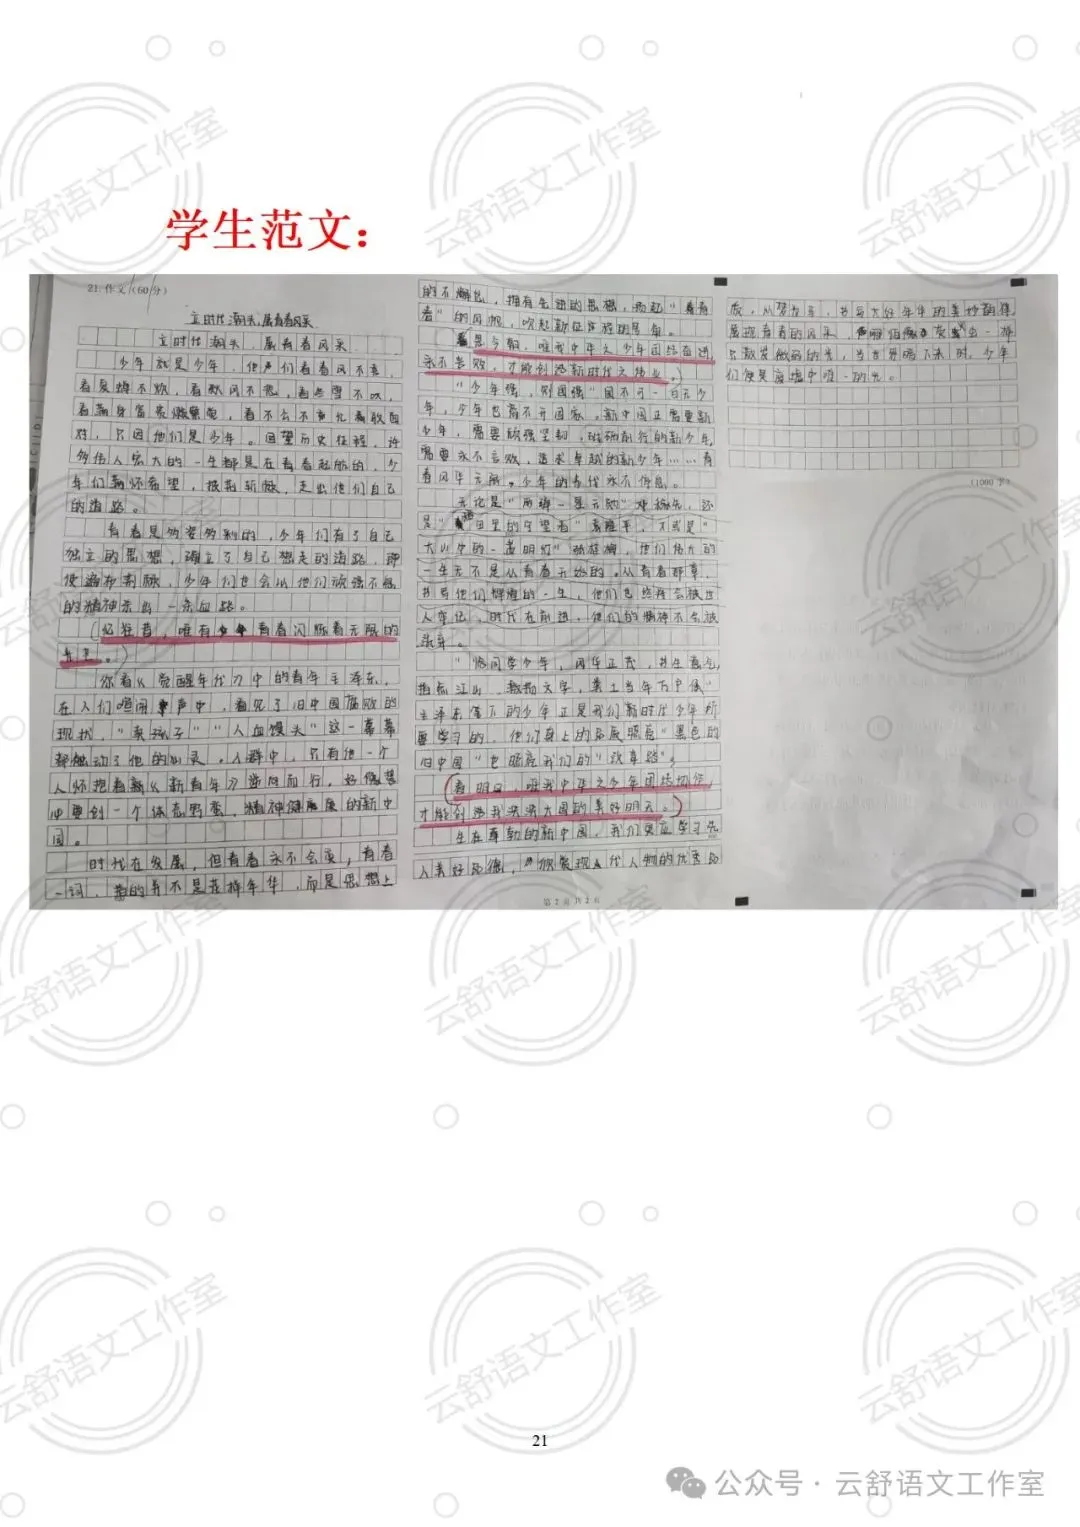 学生范文：
21. 作文（60分）
立时代潮头，展青春风采
立时代潮头，展青春风采
少年就是少年，他们看春风不喜，
看夏蝉不烦，看秋风不悲，看冬雪不叹，
看满身富贵懒察觉，看不公不允敢面
对，只因他们是少年。回望历史征程，许
多伟人宏大的一生都是在青春起航的，少
年们满怀希望，披荆斩棘，走出他们自己
的道路。
青春是多姿多彩的，少年们有了自己
独立的思想，确立了自己想走的道路，即
使遍布荆棘，少年们也会以他们顽强不屈
的精神杀出一条血路。
忆往昔，唯有青春闪烁着无限的
光芒。
你看《觉醒年代》中的青年毛泽东，
在人们喧闹声中，看见了旧中国腐败的
现状，“卖孩子”“人血馒头”这一幕幕
都触动了他的心灵。人群中，只有他一个
人怀抱着《新青年》逆向而行，好像梦
中要创一个体态野蛮，精神健康的新中
国。
时代在发展，但青春永不会衰，青春
一词，指的并不是花样年华，而是思想上
的不懈怠，拥有先进的思想，扬起“青
春”的风帆，吹起新征程的号角。
思今朝，唯我中华之少年团结奋进
永不言败，才能创造新时代之伟业。
“少年强，则国强”国不可一日无少
年，少年也离不开国家。新中国正需要新
少年，需要顽强坚韧，砥砺前行的新少年，
需要永不言败，追求卓越的新少年……青
春风华无限，少年的时代永不停息。
无论是“两弹一星元勋”邓稼先，还
是“田里的守望者”袁隆平，亦或是“
大山中的一盏明灯”张桂梅，他们伟大的
一生无不是从青春开始的。从青春那章，
书写他们辉煌的一生，他们也终将会被世
人牢记，时代在前进，他们的精神不会被
抛弃。
“恰同学少年，风华正茂，书生意气，
指点江山，激扬文字，粪土当年万户侯”
毛泽东笔下的少年正是我们新时代少年所
要学习的，他们身上的品质照亮“黑色的
旧中国”也照亮我们的“改革路”。
看明日，唯我中华之少年团结切磋，
才能创造我泱泱大国的美好明天。
生在尊勤的新中国，我们更应学习先
人美好品德，发现时代人物的优秀品
质，从梦发芽，书写大好年华的美妙韵律
展现青春的风采，萤火虫一样
只散发微弱的光，当世界暗下来时，少年
们便是废墟中唯一的光。
（1000字）
第 2 页 共 2 页
21
公众号·云舒语文工作室
云舒语文工作室